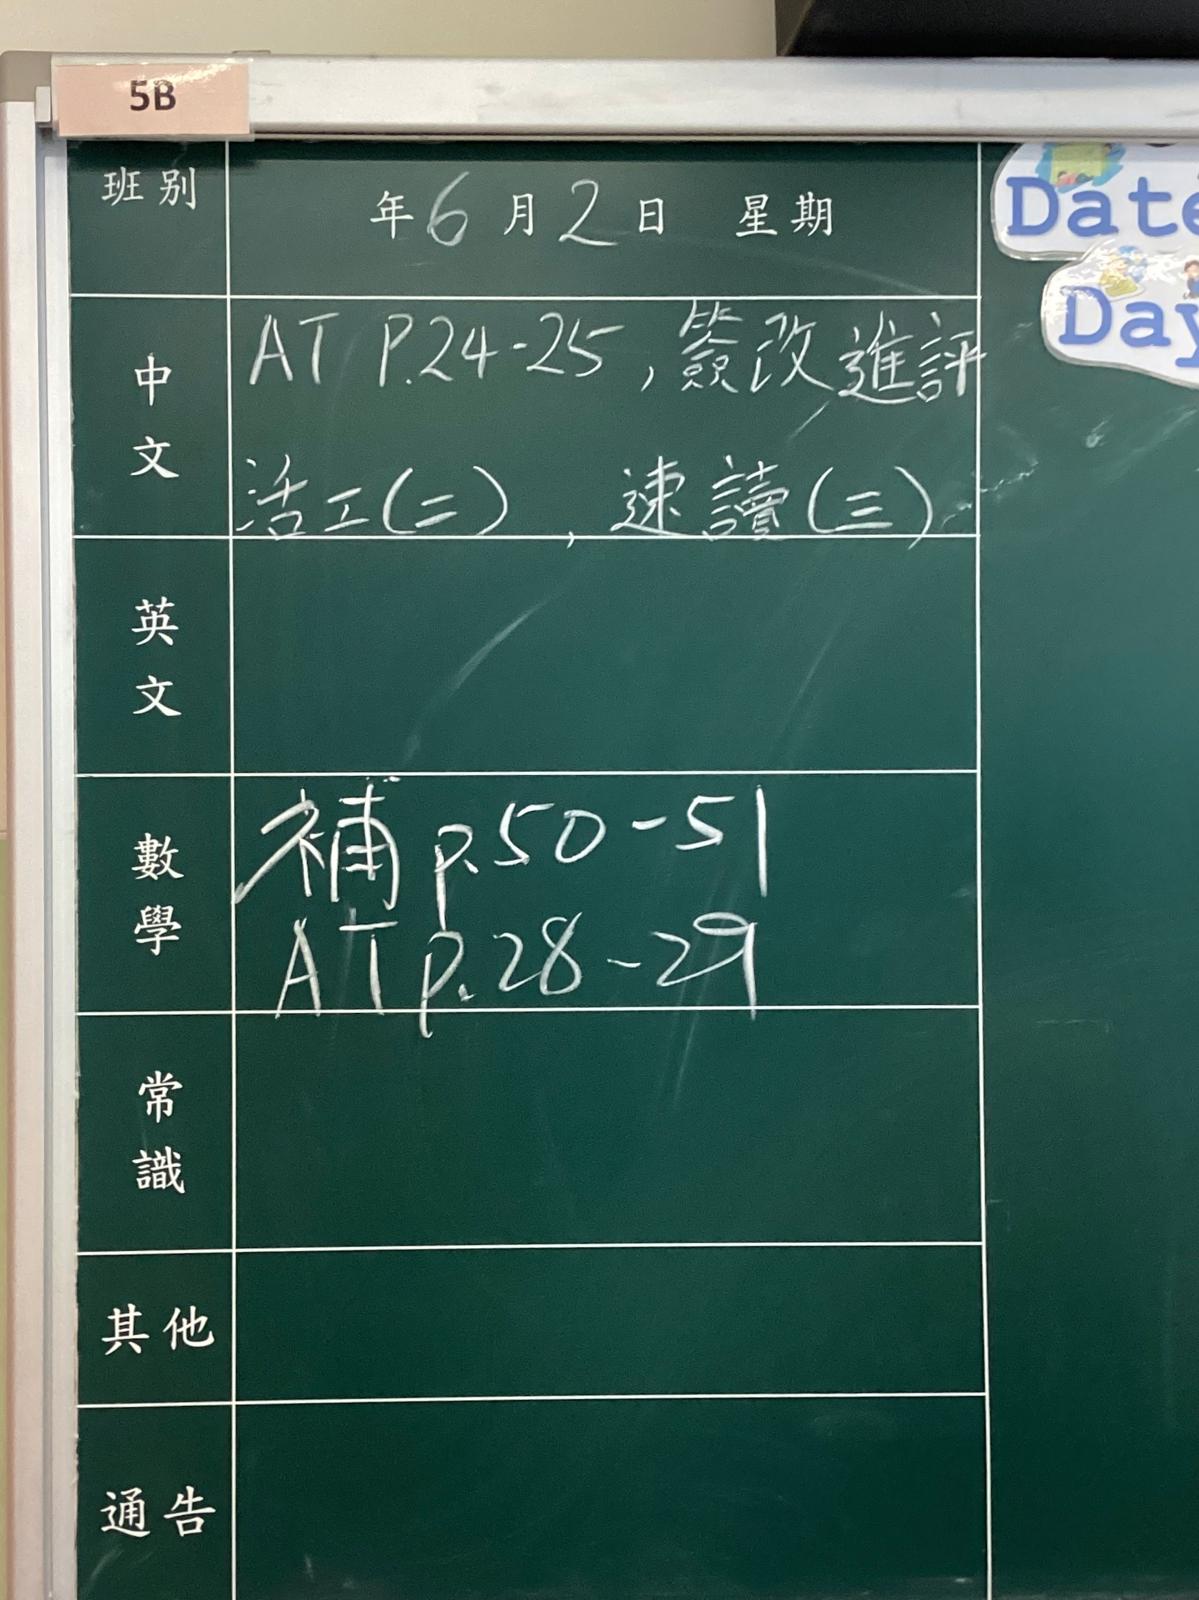 5B
班別
年6月2日 星期
中文
AT P.24-25,簽改進評
活工(二),速讀(三)
英文
數學
補 p.50-51
AT p.28-29
常識
其他
通告
Date
Day